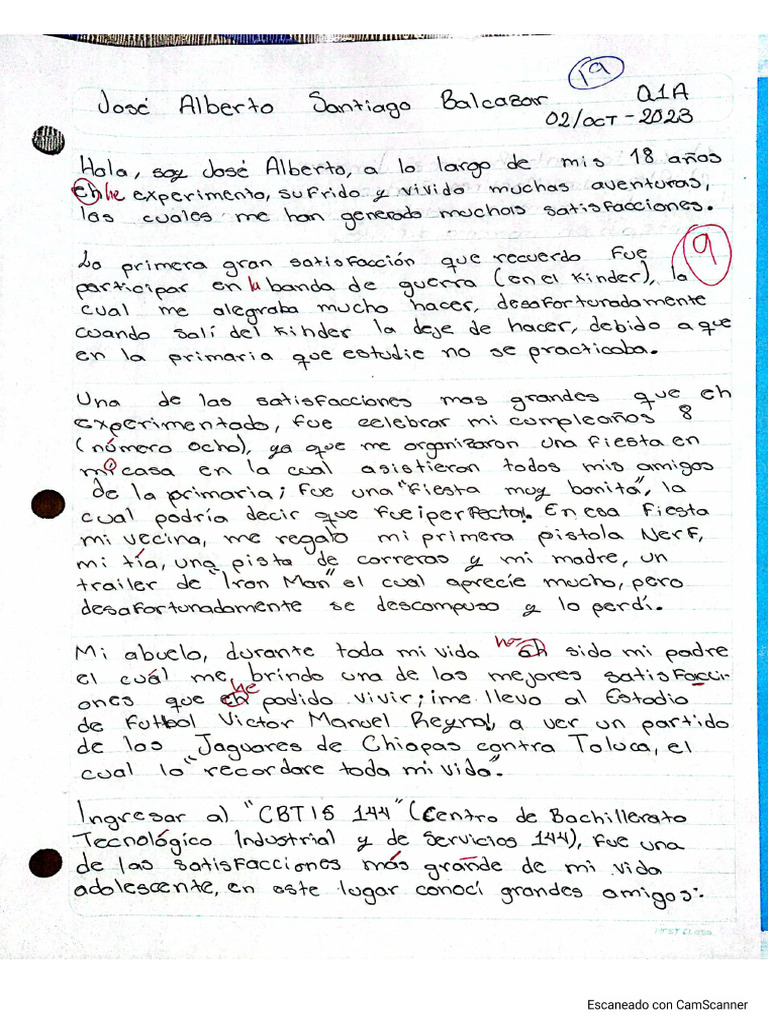 19
José Alberto Santiago Balcazar Q1A
02/OCT-2023
Hola, soy José Alberto, a lo largo de mis 18 años
eh he experimento, sufrido y vivido muchas aventuras,
las cuales me han generado muchas satisfacciones.
9
La primera gran satisfacción que recuerdo fue
participar en la banda de guerra (en el Kinder), la
cual me alegraba mucho hacer, desafortunadamente
cuando salí del Kinder la deje de hacer, debido a que
en la primaria que estudie no se practicaba.
Una de las satisfacciones mas grandes que eh
experimentado, fue celebrar mi cumpleaños 8
(número ocho), ya que me organizaron una fiesta en
mi casa en la cual asistieron todos mis amigos
de la primaria; fue una "fiesta muy bonita", la
cual podría decir que fue ¡perfecta!. En esa fiesta
mi vecina, me regalo mi primera pistola Nerf,
mi tía, una pista de carreras y mi madre, un
trailer de "Iron Man" el cual aprecíe mucho, pero
desafortunadamente se descompuso y lo perdí.
Mi abuelo, durante toda mi vida ha ah sido mi padre
el cuál me brindo una de las mejores satisfacci-
ones que eh he podido vivir; ¡me llevo al Estadio
de Futbol Victor Manuel Reyna!, a ver un partido
de los "Jaguares de Chiapas contra Toluca, el
cual lo "recordare toda mi vida".
Ingresar al "CBTIS 144" (Centro de Bachillerato
Tecnológico Industrial y de Servicios 144), fue una
de las satisfacciones más grande de mi vida
adolescente, en este lugar conocí grandes amigos:
FIRST CLASS
Escaneado con CamScanner